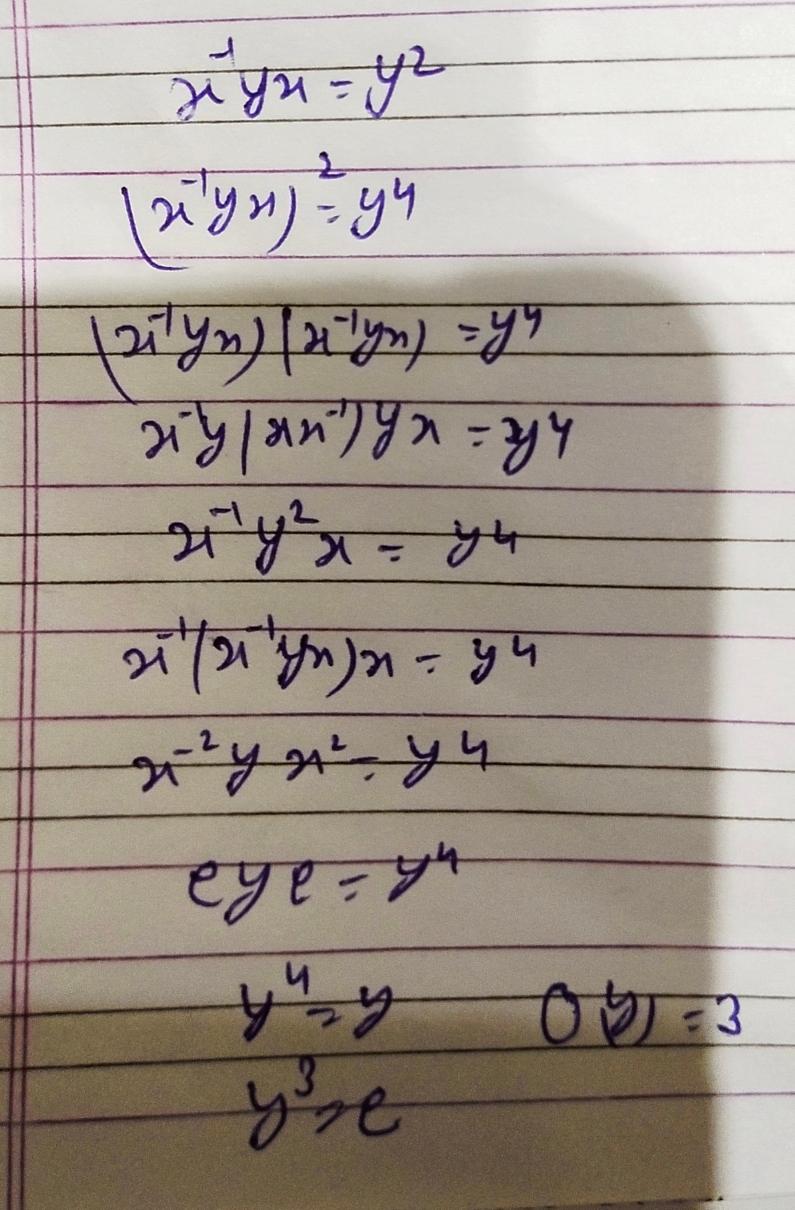 x⁻¹yx = y²
(x⁻¹yx)² = y⁴
(x⁻¹yx)(x⁻¹yx) = y⁴
x⁻¹y(xx⁻¹)yx = y⁴
x⁻¹y²x = y⁴
x⁻¹(x⁻¹yx)x = y⁴
x⁻²yx² = y⁴
eye = y⁴
y⁴ = y O(y) = 3
y³ = e